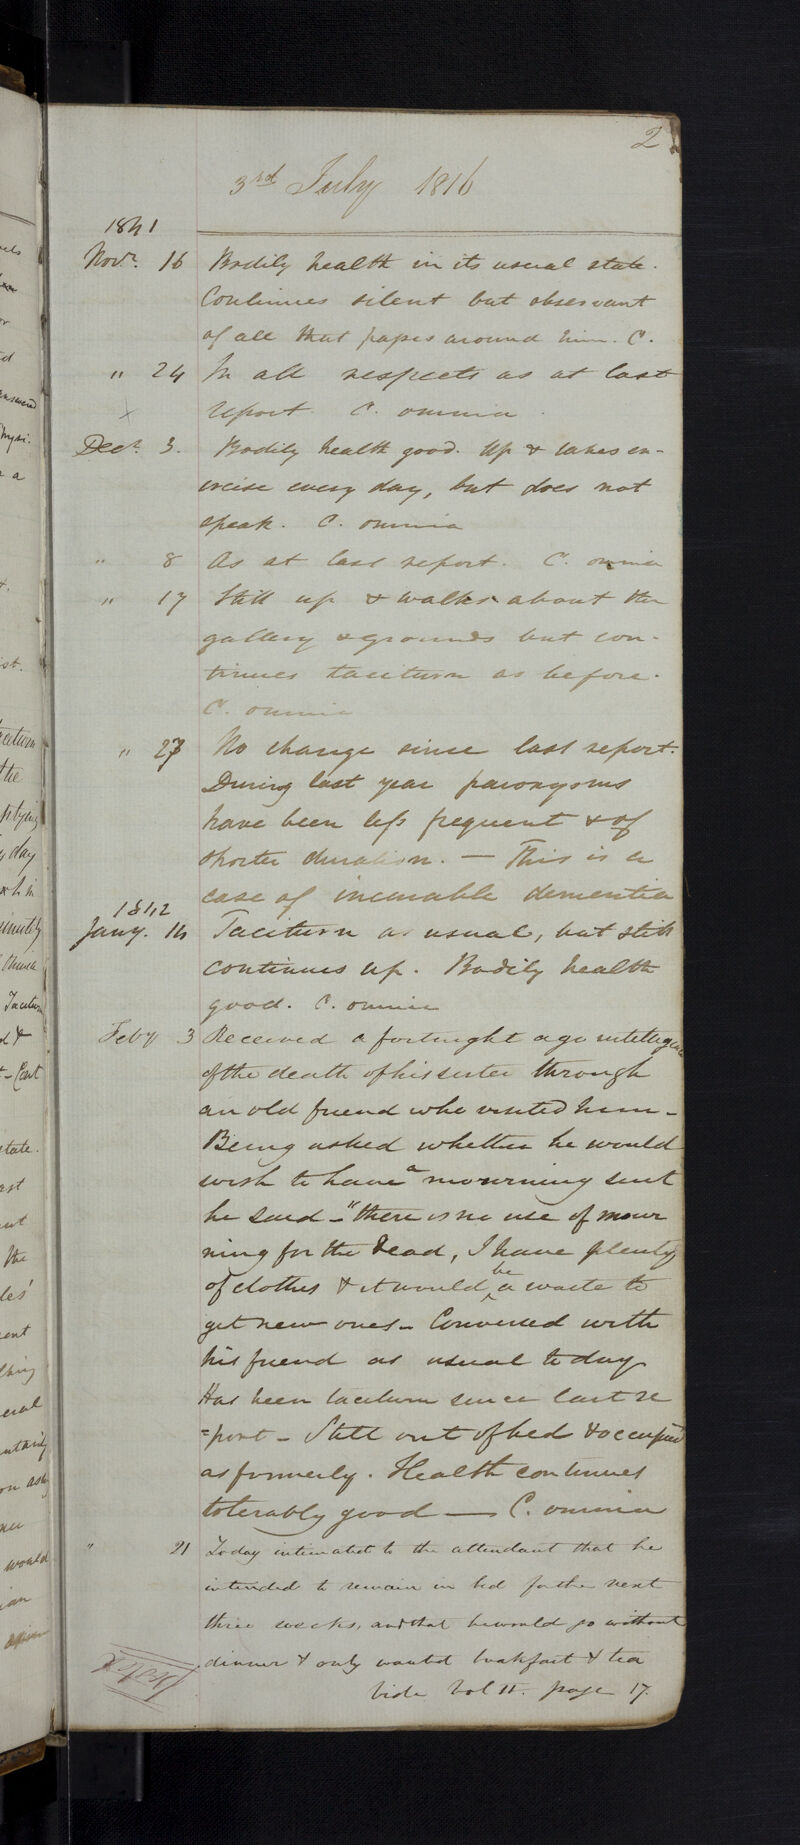 2
3rd July 1816
1841
Novr. 16 Bodily health in its usual state.
Continues silent but observant
of all that passes around him. C.
" 24 In all respects as at last
report. C. omnia.
Decr. 3. Bodily health good. Up & takes ex-
ercise every day, but does not
speak. C. omnia
" 8 As at last report. C. omnia
" 17 Still up & walks about the
gallery & grounds but con-
tinues taciturn as before.
C. omnia
" 27 No change since last report.
During last year paroxysms
have been less frequent & of
shorter duration. — This is a
case of incurable dementia
1842
Jany. 14 Taciturn as usual, but still
continues up. Bodily health
good. C. omnia
Feby 3 Received a fortnight ago intelligence
of the death of his sister through
an old friend who visited him -
Being asked whether he would
wish to have a mourning suit
he said - "there is no use of mour
ning for the Dead, I have plenty
of clothes & it would be a waste to
get new ones - Conversed with
his friend as usual to day
Has been taciturn since last re
=port - Still out of bed & occupied
as formerly. Health continues
tolerably good — C. omnia
" 21 Today intimated to the attendant that he
intended to remain in bed for the next
three weeks, and that he would go without
dinner & only wanted breakfast & tea
Vide Vol II. page 17.